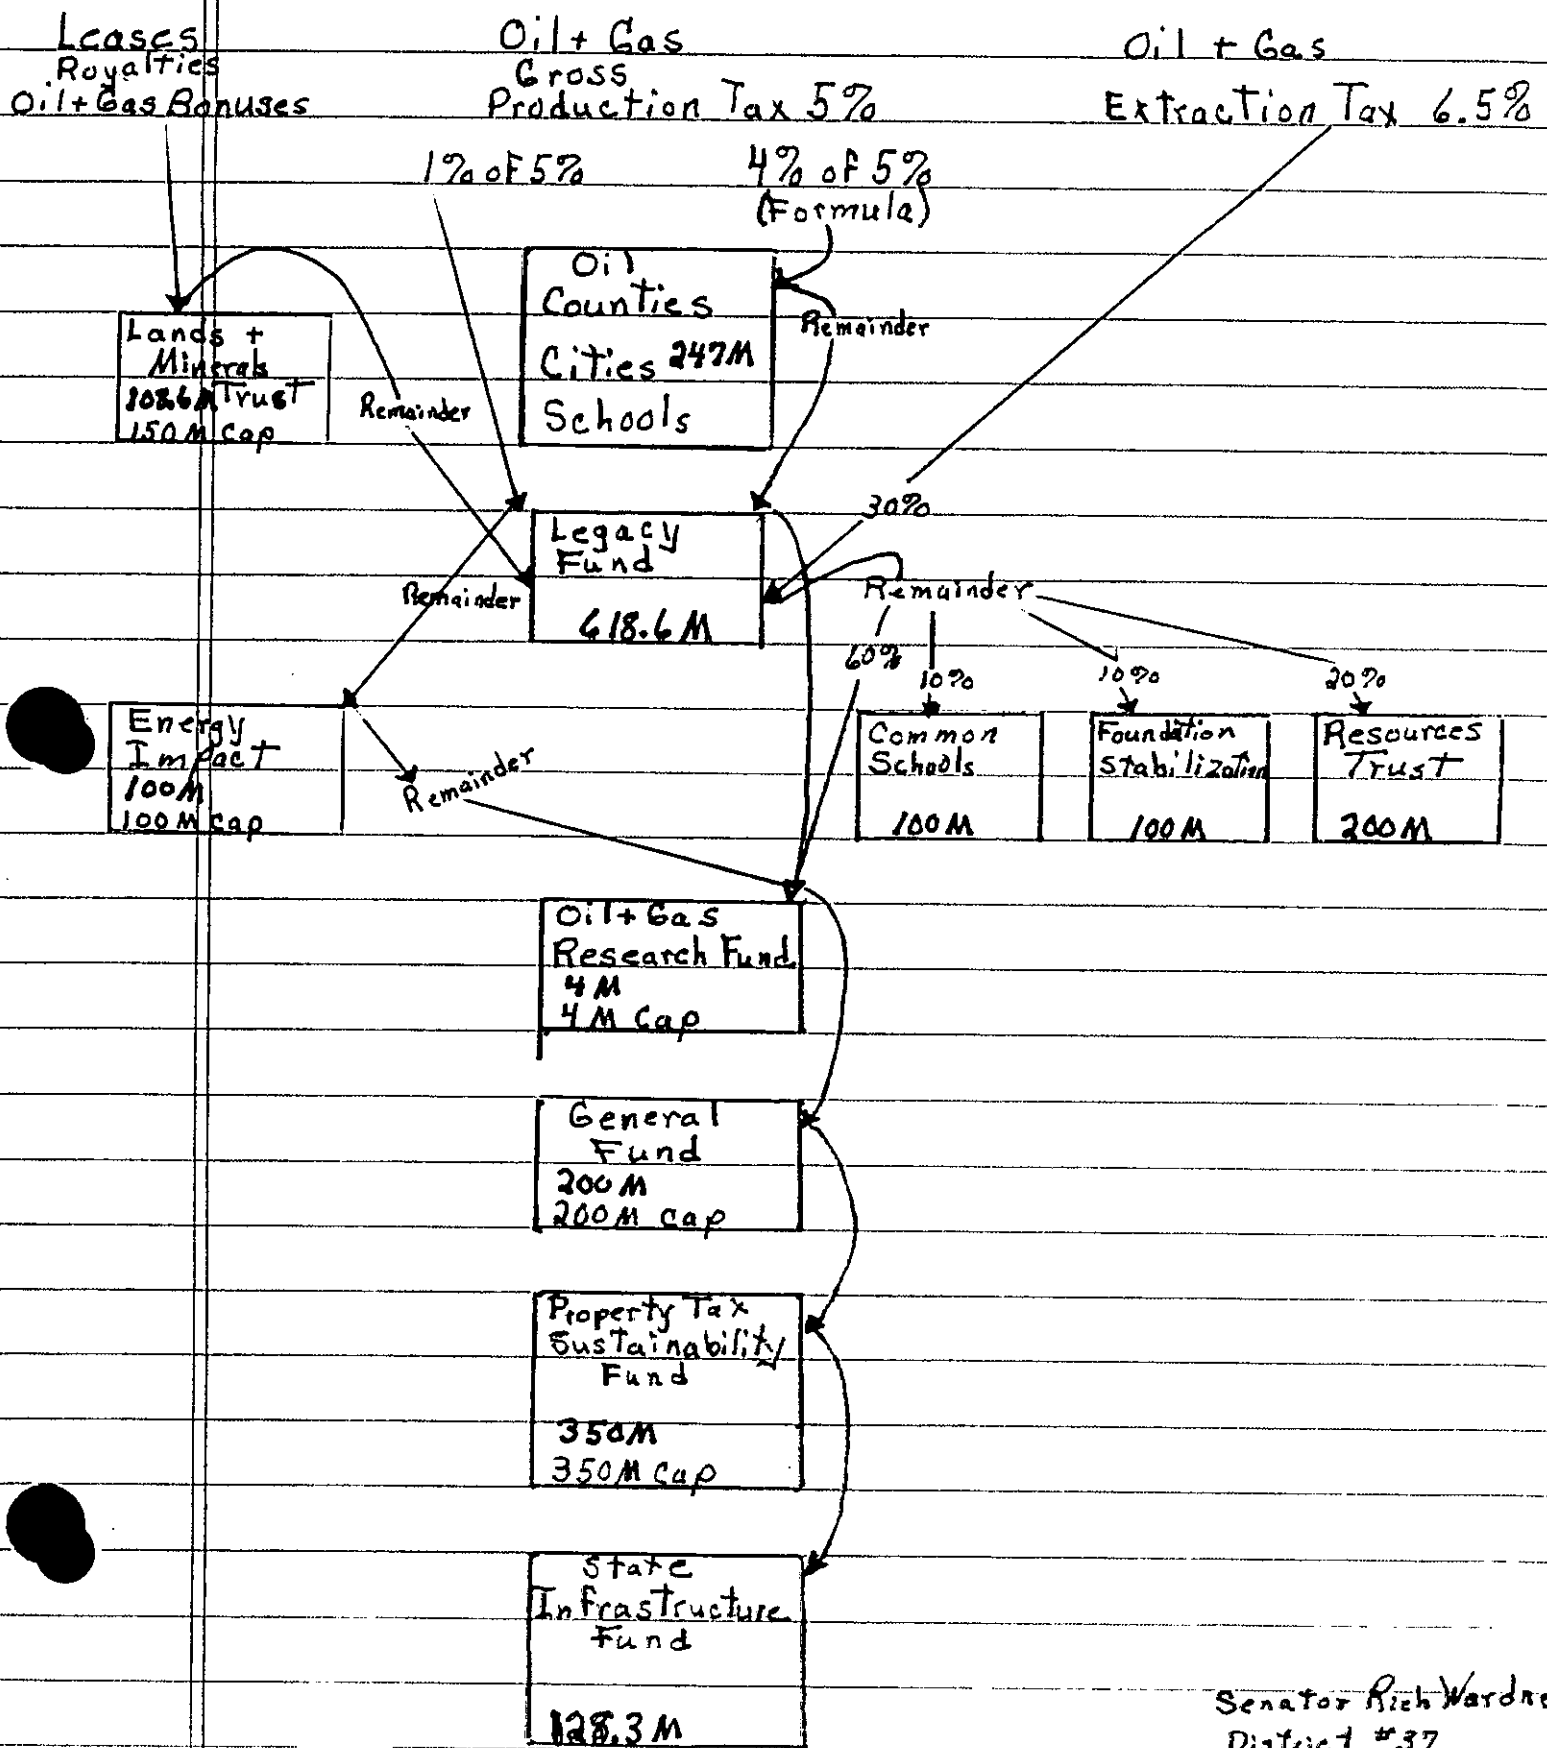 Leases
Royalties
Oil + Gas Bonuses
Oil + Gas
Gross
Production Tax 5%
Oil + Gas
Extraction Tax 6.5%
1% of 5%
4% of 5%
(Formula)
Lands +
Minerals
108.6M Trust
150 M Cap
Remainder
Oil
Counties
Cities 247M
Schools
Remainder
30%
Legacy
Fund
618.6 M
Remainder
Remainder
60%
10%
10%
20%
Energy
Impact
100M
100 M Cap
Remainder
Common
Schools
100 M
Foundation
Stabilization
100 M
Resources
Trust
200 M
Oil + Gas
Research Fund
4 M
4 M Cap
General
Fund
200 M
200 M Cap
Property Tax
Sustainability
Fund
350M
350 M Cap
State
Infrastructure
Fund
128.3 M
Senator Rich Wardne
District #37